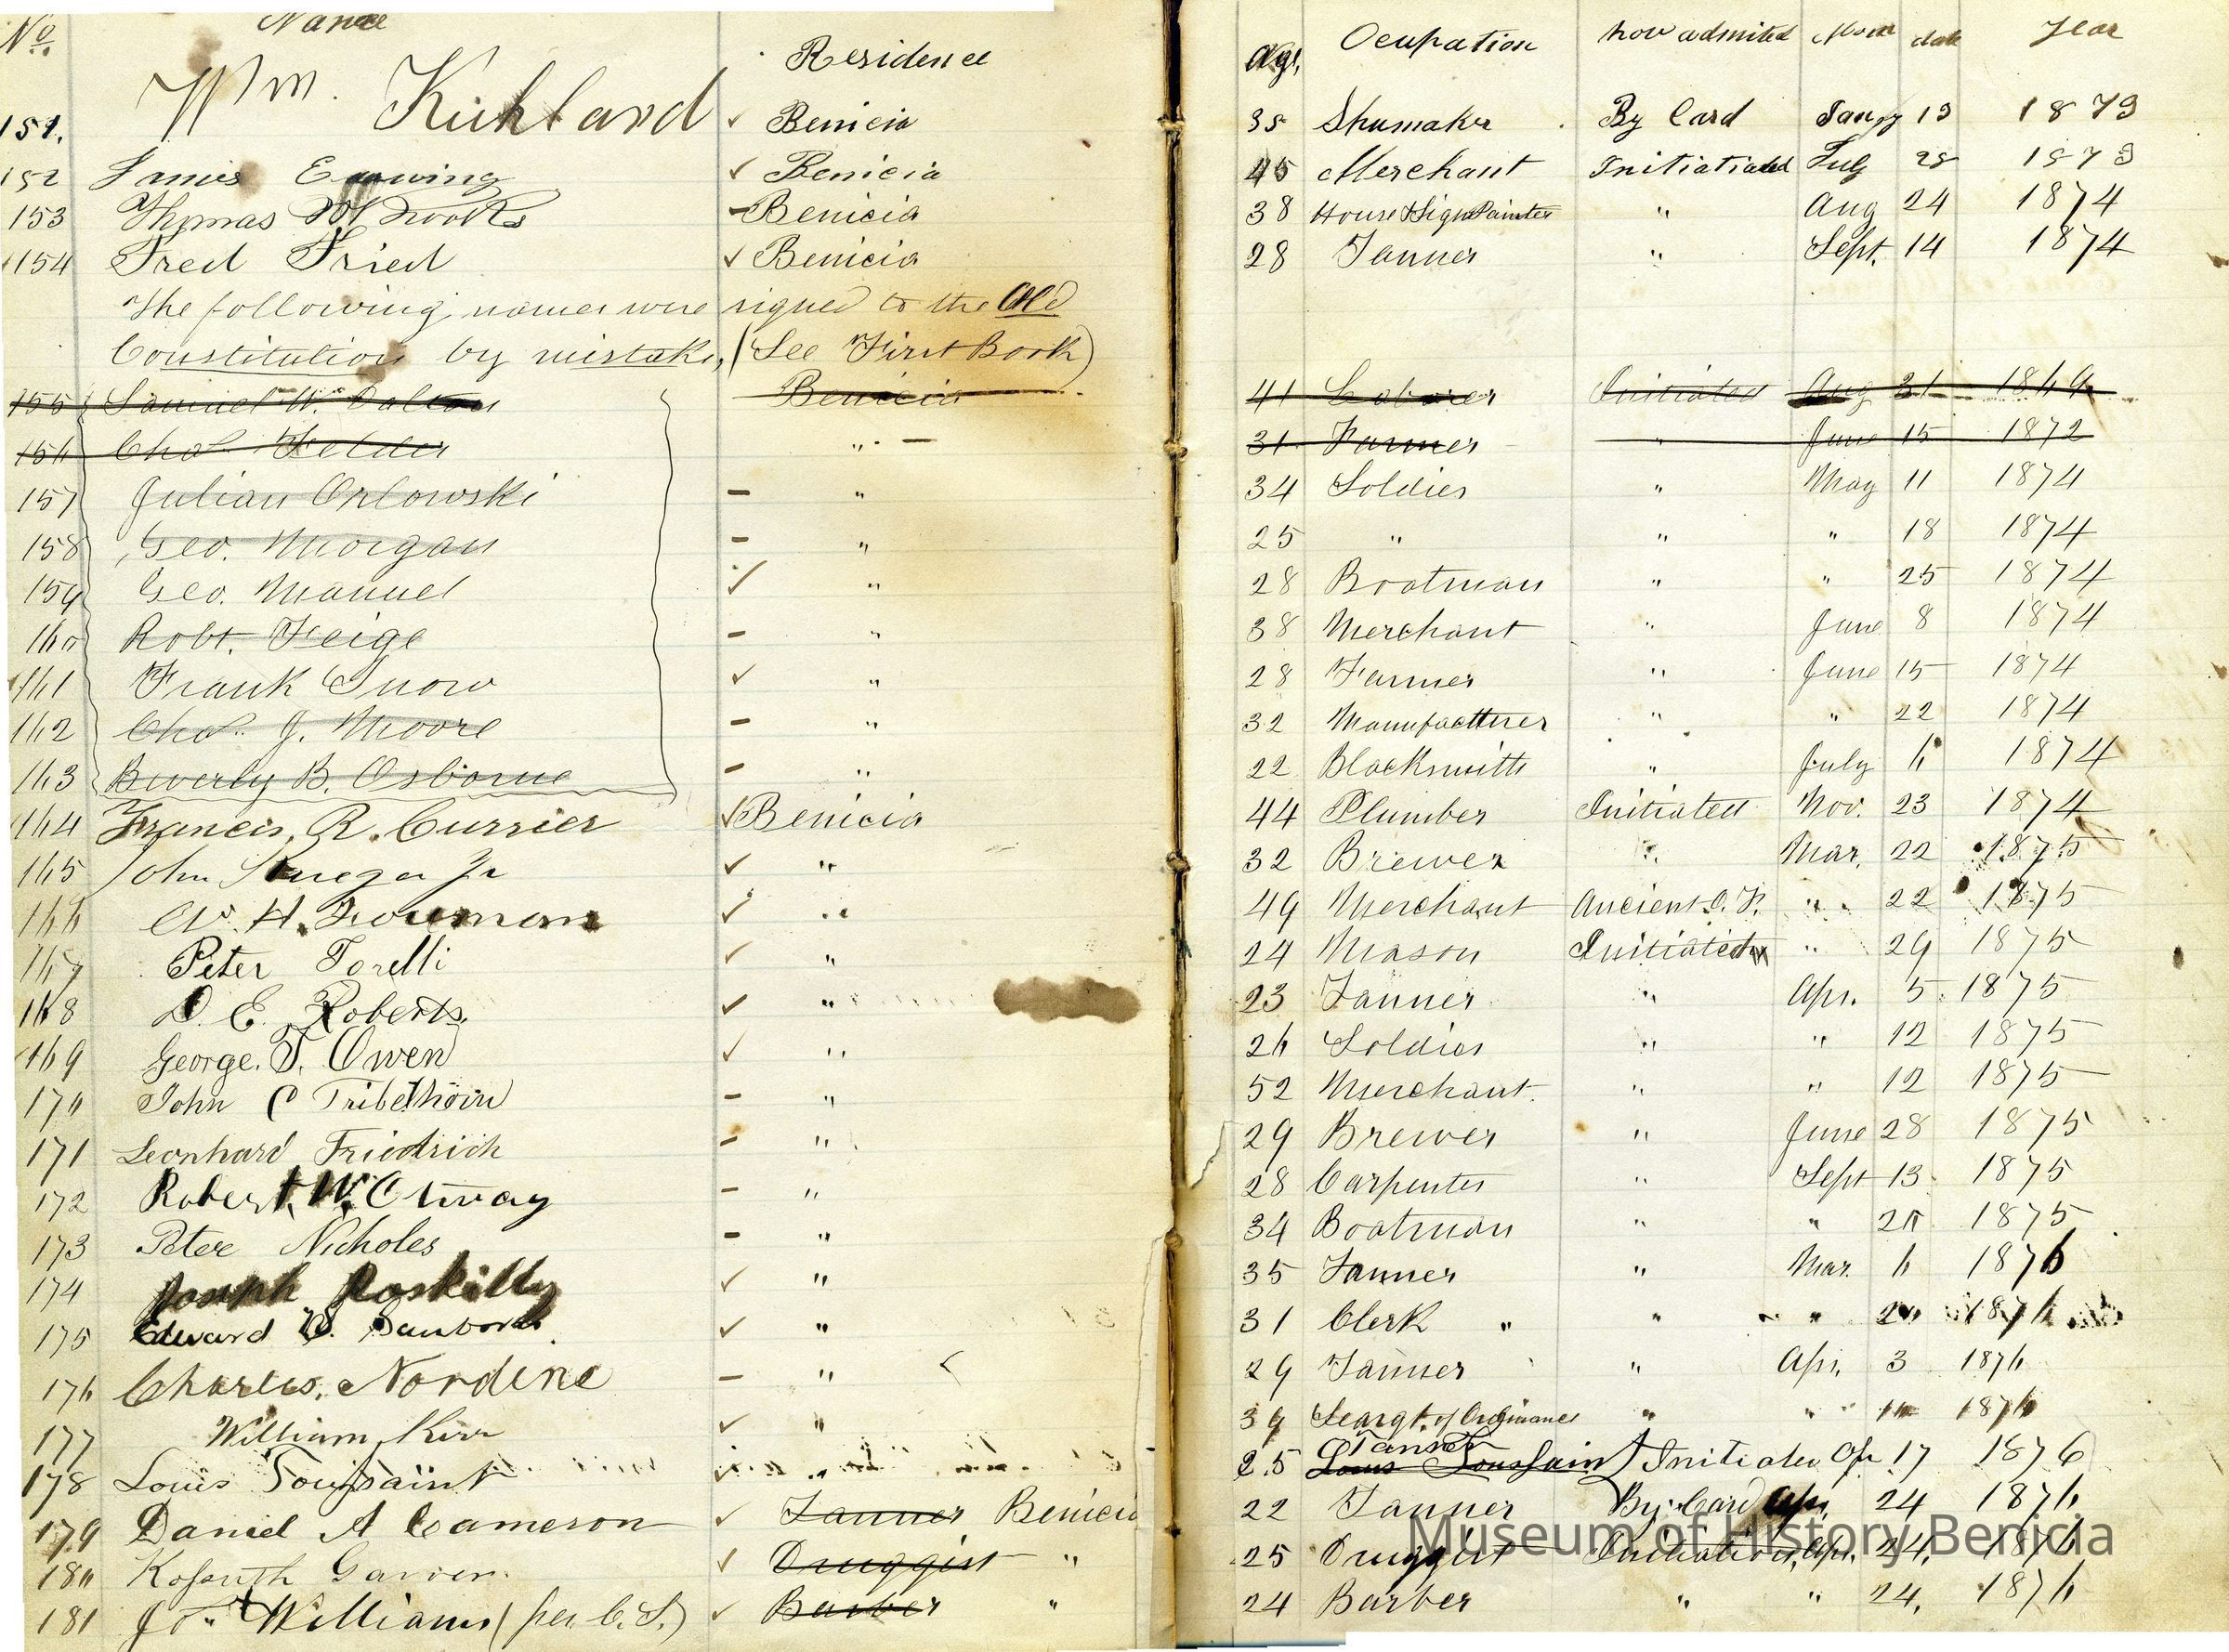 No. Name Residence Age, Ocupation how admited Month date Year
151. Wm. Kuhland Benicia 35 Shumaker By Card Jany 13 1873
152 James Benicia 45 Merchant Initiatiated July 28 1873
153 Thomas Benicia 38 House & Sign Painter " Aug 24 1874
154 Fred Fried Benicia 28 Tanner " Sept. 14 1874
The following names were signed to the Old
Constitution by mistake, (See First Book)
155 Samuel W. Dalton Benicia 41 Laborer Initiated Aug 31 1869
156 Chas Felder " 31 Farmer " June 15 1872
157 Julian Orlowski " 34 Soldier " May 11 1874
158 Geo. Morgan " 25 " " " 18 1874
159 Geo. Manuel " 28 Boatman " " 25 1874
160 Robt. Feige " 38 Merchant " June 8 1874
161 Frank Snow " 28 Farmer " June 15 1874
162 Chas. J. Moore " 32 Manufactturer " " 22 1874
163 Beverly B. Osborne " 22 Blacksmith " July 6 1874
164 Francis, R. Currier Benicia 44 Plumber Initiated Nov. 23 1874
165 John Jr " 32 Brewer " Mar. 22 1875
166 W. H. Foreman " 49 Merchant Ancient O. F. " 22 1875
167 Peter Torelli " 24 Mason Initiated " 29 1875
168 D. E. Roberts. " 23 Tanner " Apr. 5 1875
169 George. T. Owen " 26 Soldier " " 12 1875
170 John C Tribelhörn " 52 Merchant. " " 12 1875
171 Leonhard Friedrich " 29 Brewer " June 28 1875
172 Robert. W. Otway " 28 Carpenter " Sept 13 1875
173 Peter Nicholes " 34 Boatman " " 20 1875
174 Joseph Roskilly " 35 Tanner " Mar. 6 1876
175 Edward Danborn " 31 Clerk " " " 20 1876
176 Charles. Nordine " 29 Tanner " Apr. 3 1876
177 William Kerr " 39 Seargt. of Ordinance " " 10 1876
178 Louis Toussaint " 25 Tanner Louis Toussaint Initiated Apr 17 1876
179 Daniel A Cameron Tanner Benicia 22 Tanner By Card Apr. 24 1876
180 Kossuth Garver. Druggist " 25 Druggist Initiation, Apr. 24, 1876
181 Jos Williams (per C. S.) Barber " 24 Barber " " 24, 1876
Museum of History Benicia